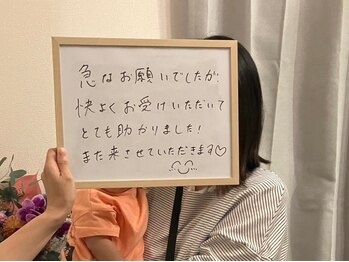 急なお願いでしたが、
快よくお受けいただいて
とても助かりました!
また来させていただきます♡